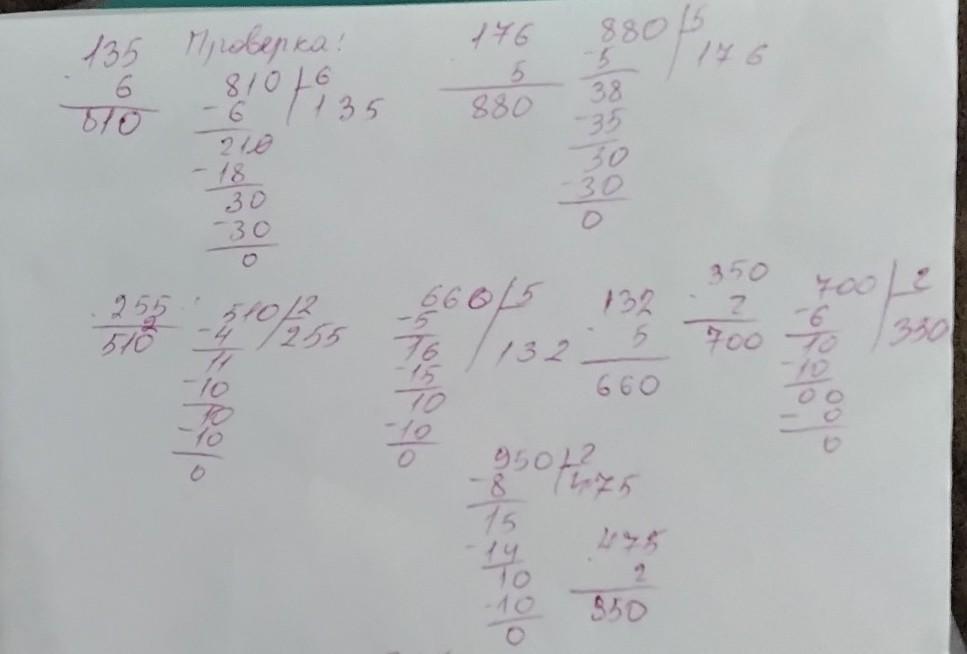 135 Проверка!
6
510
810 6
-6 135
210
-18
30
-30
0
176
5
880
880 5
-5 176
38
-35
30
-30
0
255
2
510
510 2
-4 255
11
-10
10
-10
0
660 5
-5 132
16
-15
10
-10
0
132
5
660
350
2
700
700 2
-6 350
10
-10
00
-0
0
950 2
-8 475
15
-14
10
-10
0
475
2
950